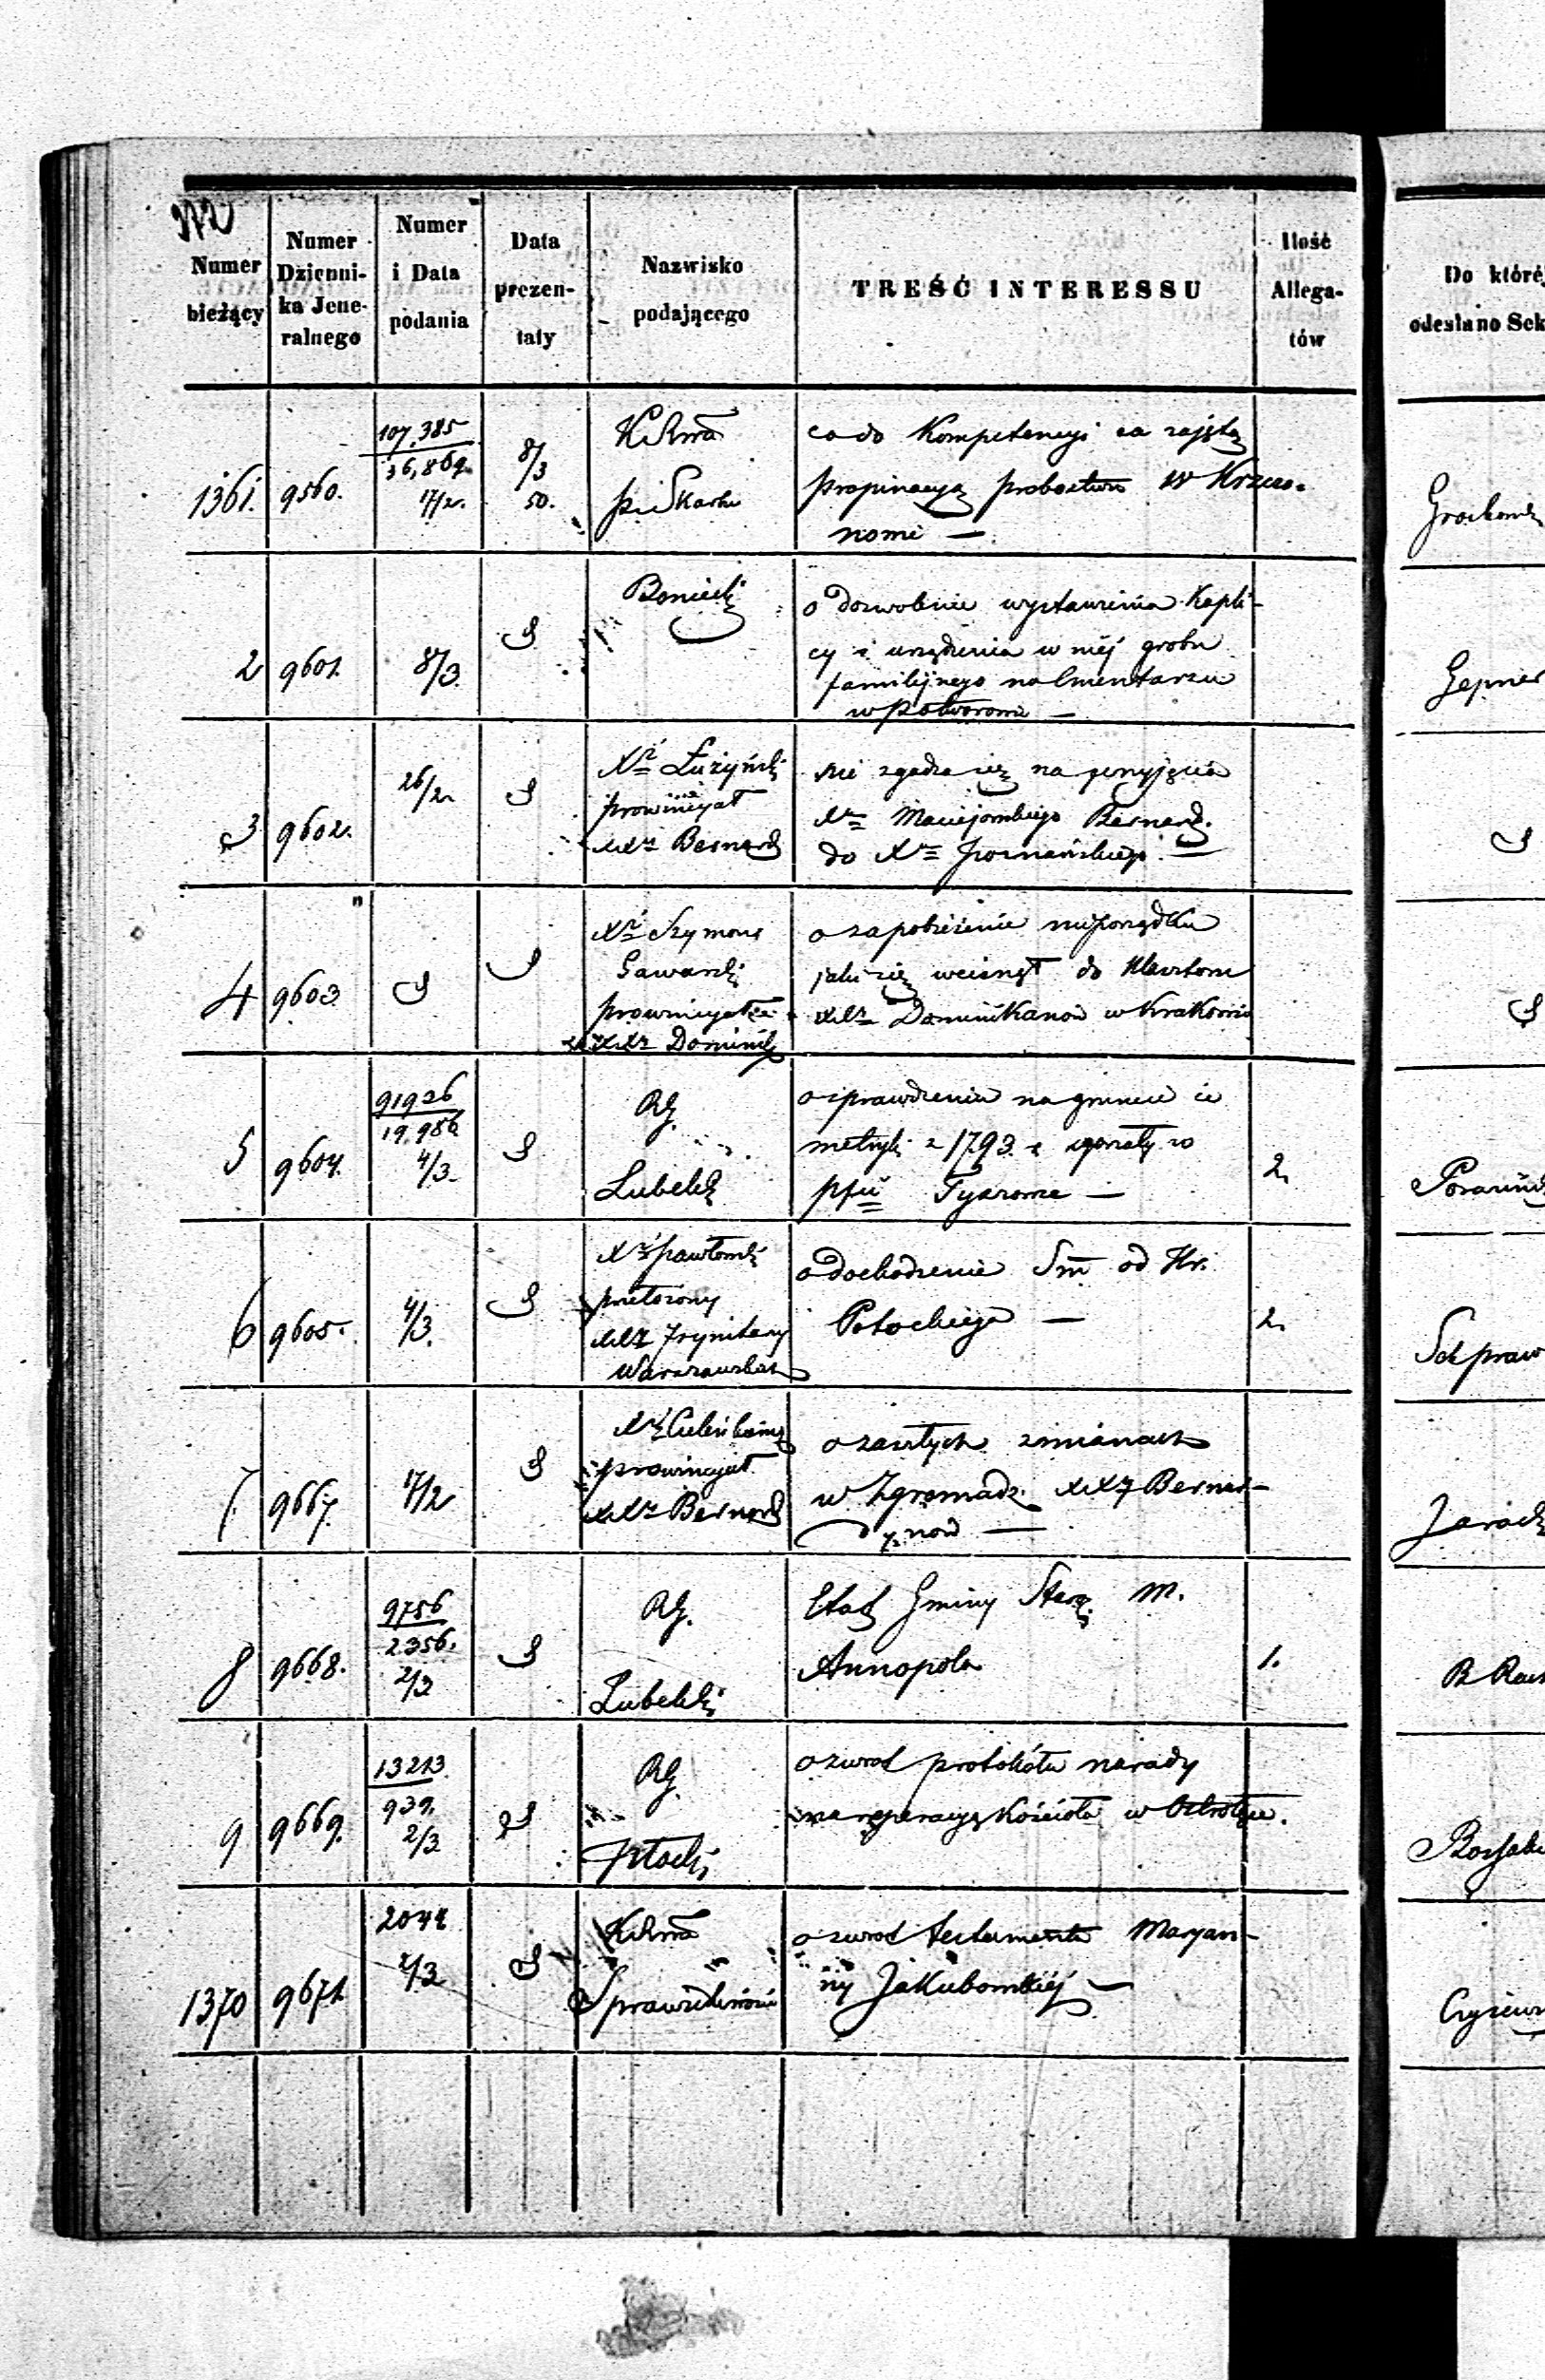 Numer bieżący
Numer Dzienni-ka Jene-ralnego
Numer i Data podania
Data prezen-taty
Nazwisko podającego
TREŚĆ INTERESSU
Ilość Allega-tów
Do któréj
odesłano Sek
1361. 9560. 107,385 36,869 17/2. 8/3 50.
KRwa
p. Skarbu
co do Kompetencyi za zajętą
propinacyą probostwu w Krzczo-
nowie —
2 9601. 8/3
Boniecki
o dozwolenie wystawienia Kapli-
cy i urządzenia w niéj grobu
familijnego na Cmentarzu
w Potworowie —
Gepner
3 9602. 26/2
Xdz Łużyński
prowincyał
XXdz Bernard
nie zgadza się na przyjęcie
Xdza Maciejowskiego Bernard.
do Xdza Poznańskiego. —
4 9603
Xdz Szymon
Gawarski
prowincyał
XXdz Dominik
o zapobieżenie nieporządku
jaki się wcisnął do Klasztoru
XXdz Dominikanów w Krakowie
5 9604. 91926 19,986 4/3
RG.
Lubelski
o sprawdzenie na gruncie że
metryki z 1793 r zgorzały w
pfii Tyszowce —
2
6 9605. 4/3.
Xdz Pawłowski
przełożony
XXdz Trynitarzy
Warszawskich
o dochodzenie Sum od Hr.
Potockiego —
2.
Sekpraw
7. 9667. 17/2
prowincyał
XXdz Bernard
o zaszłych zmianach
w Zgromadz. XXdz Bernar-
dynów —
8 9668. 9756 2356. 2/3
RG.
Lubelski
Etat Gminy Starz. M.
Annopola
1.
9 9669. 13213 939. 2/3
RG.
Płocki
o zwrot protokółu narady
na reperacyą Kościoła w Ostrołęce.
1370 9671 2044 2/3
KRwa
Sprawiedliwości
o zwrot testamentu Maryan-
ny Jakubowskiéj —